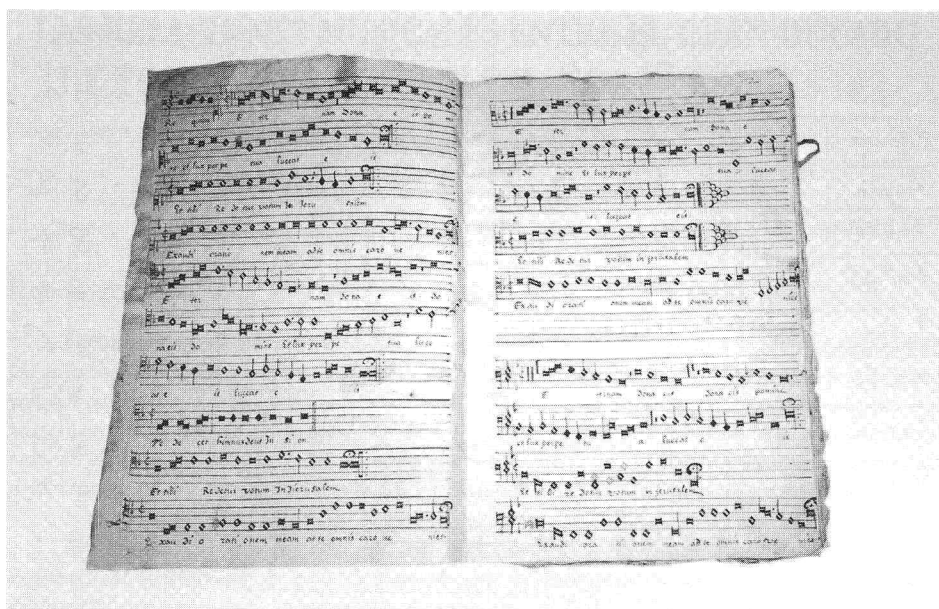 Re quiem E ter nam Dona e is Do mi
ne Et lux perpe tua luceat e is
Et tibi Re de tur votum In Jeru salem
Exaudi oratio nem meam ad te omnis caro ve niet
E ter nam dona e is do
na eis do mine Et lux per pe tua luce
at e is luceat e is
Te de cet hymnus deus In si on
Et tibi Redetur votum In Jerusalem
E xau di o rati onem meam ad te omnis caro ve niet
E ter nam dona e
is do mine Et lux perpe tua luceat
e is luceat eis
Et tibi Redetur votum in jerusalem
Exau di orati onem meam ad te omnis caro ve niet
E ternam dona eis dona eis domine
et lux perpe tu a luceat e is
Et ti bi re detur votum in jerusalem
Exaudi ora ti onem meam ad te omnis caro ve niet